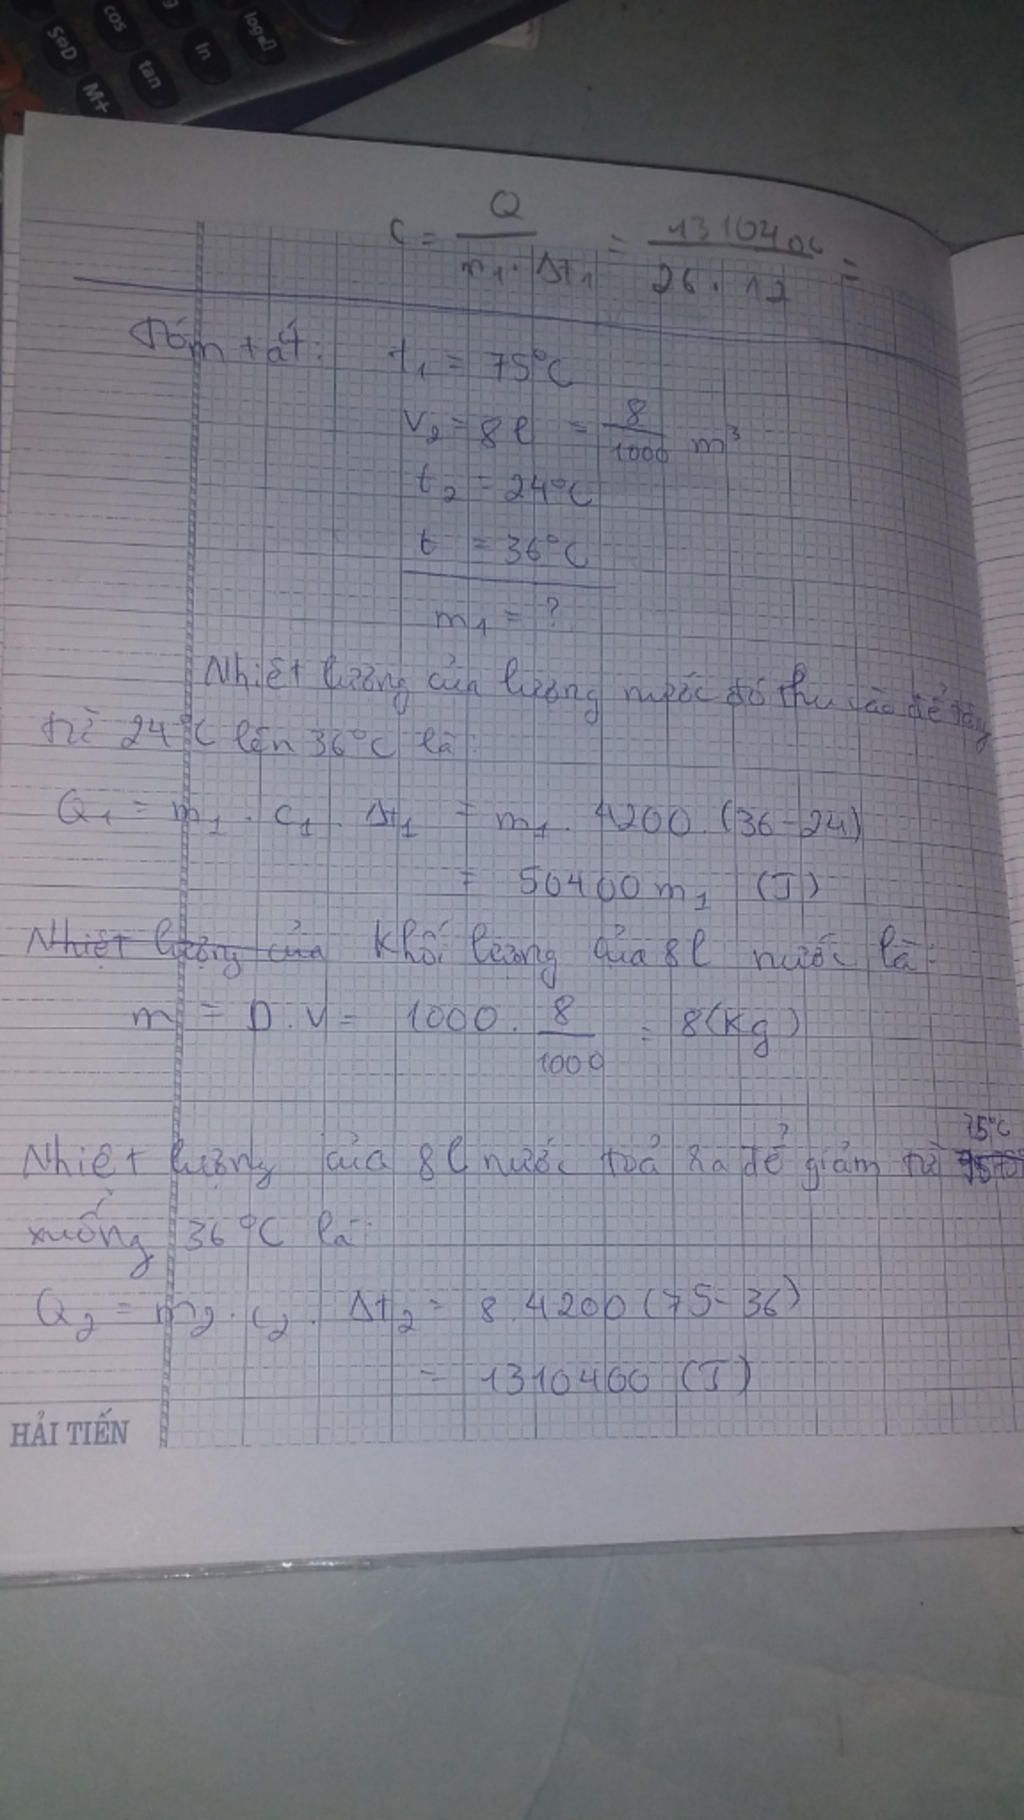 S⇔D
cos
tan
ln
log
M+
C = Q / m₁ . Δt₁ = 131040 / 26 . 12 =
Tóm tắt: t₁ = 75°C
V₂ = 8l = 8/1000 m³
t₂ = 24°C
t = 36°C
m₁ = ?
Nhiệt lượng của lượng nước đó thu vào để tăng
từ 24°C lên 36°C là:
Q₁ = m₁ . c₁ . Δt₁ = m₁ . 4200 . (36-24)
= 50400 m₁ (J)
Nhiệt lượng của Khối lượng của 8l nước là:
m = D . V = 1000 . 8/1000 = 8(Kg)
75°C
Nhiệt lượng của 8l nước toả ra để giảm từ
xuống 36°C là:
Q₂ = m₂ . c₂ . Δt₂ = 8 . 4200 (75-36)
= 1310400 (J)
HẢI TIẾN